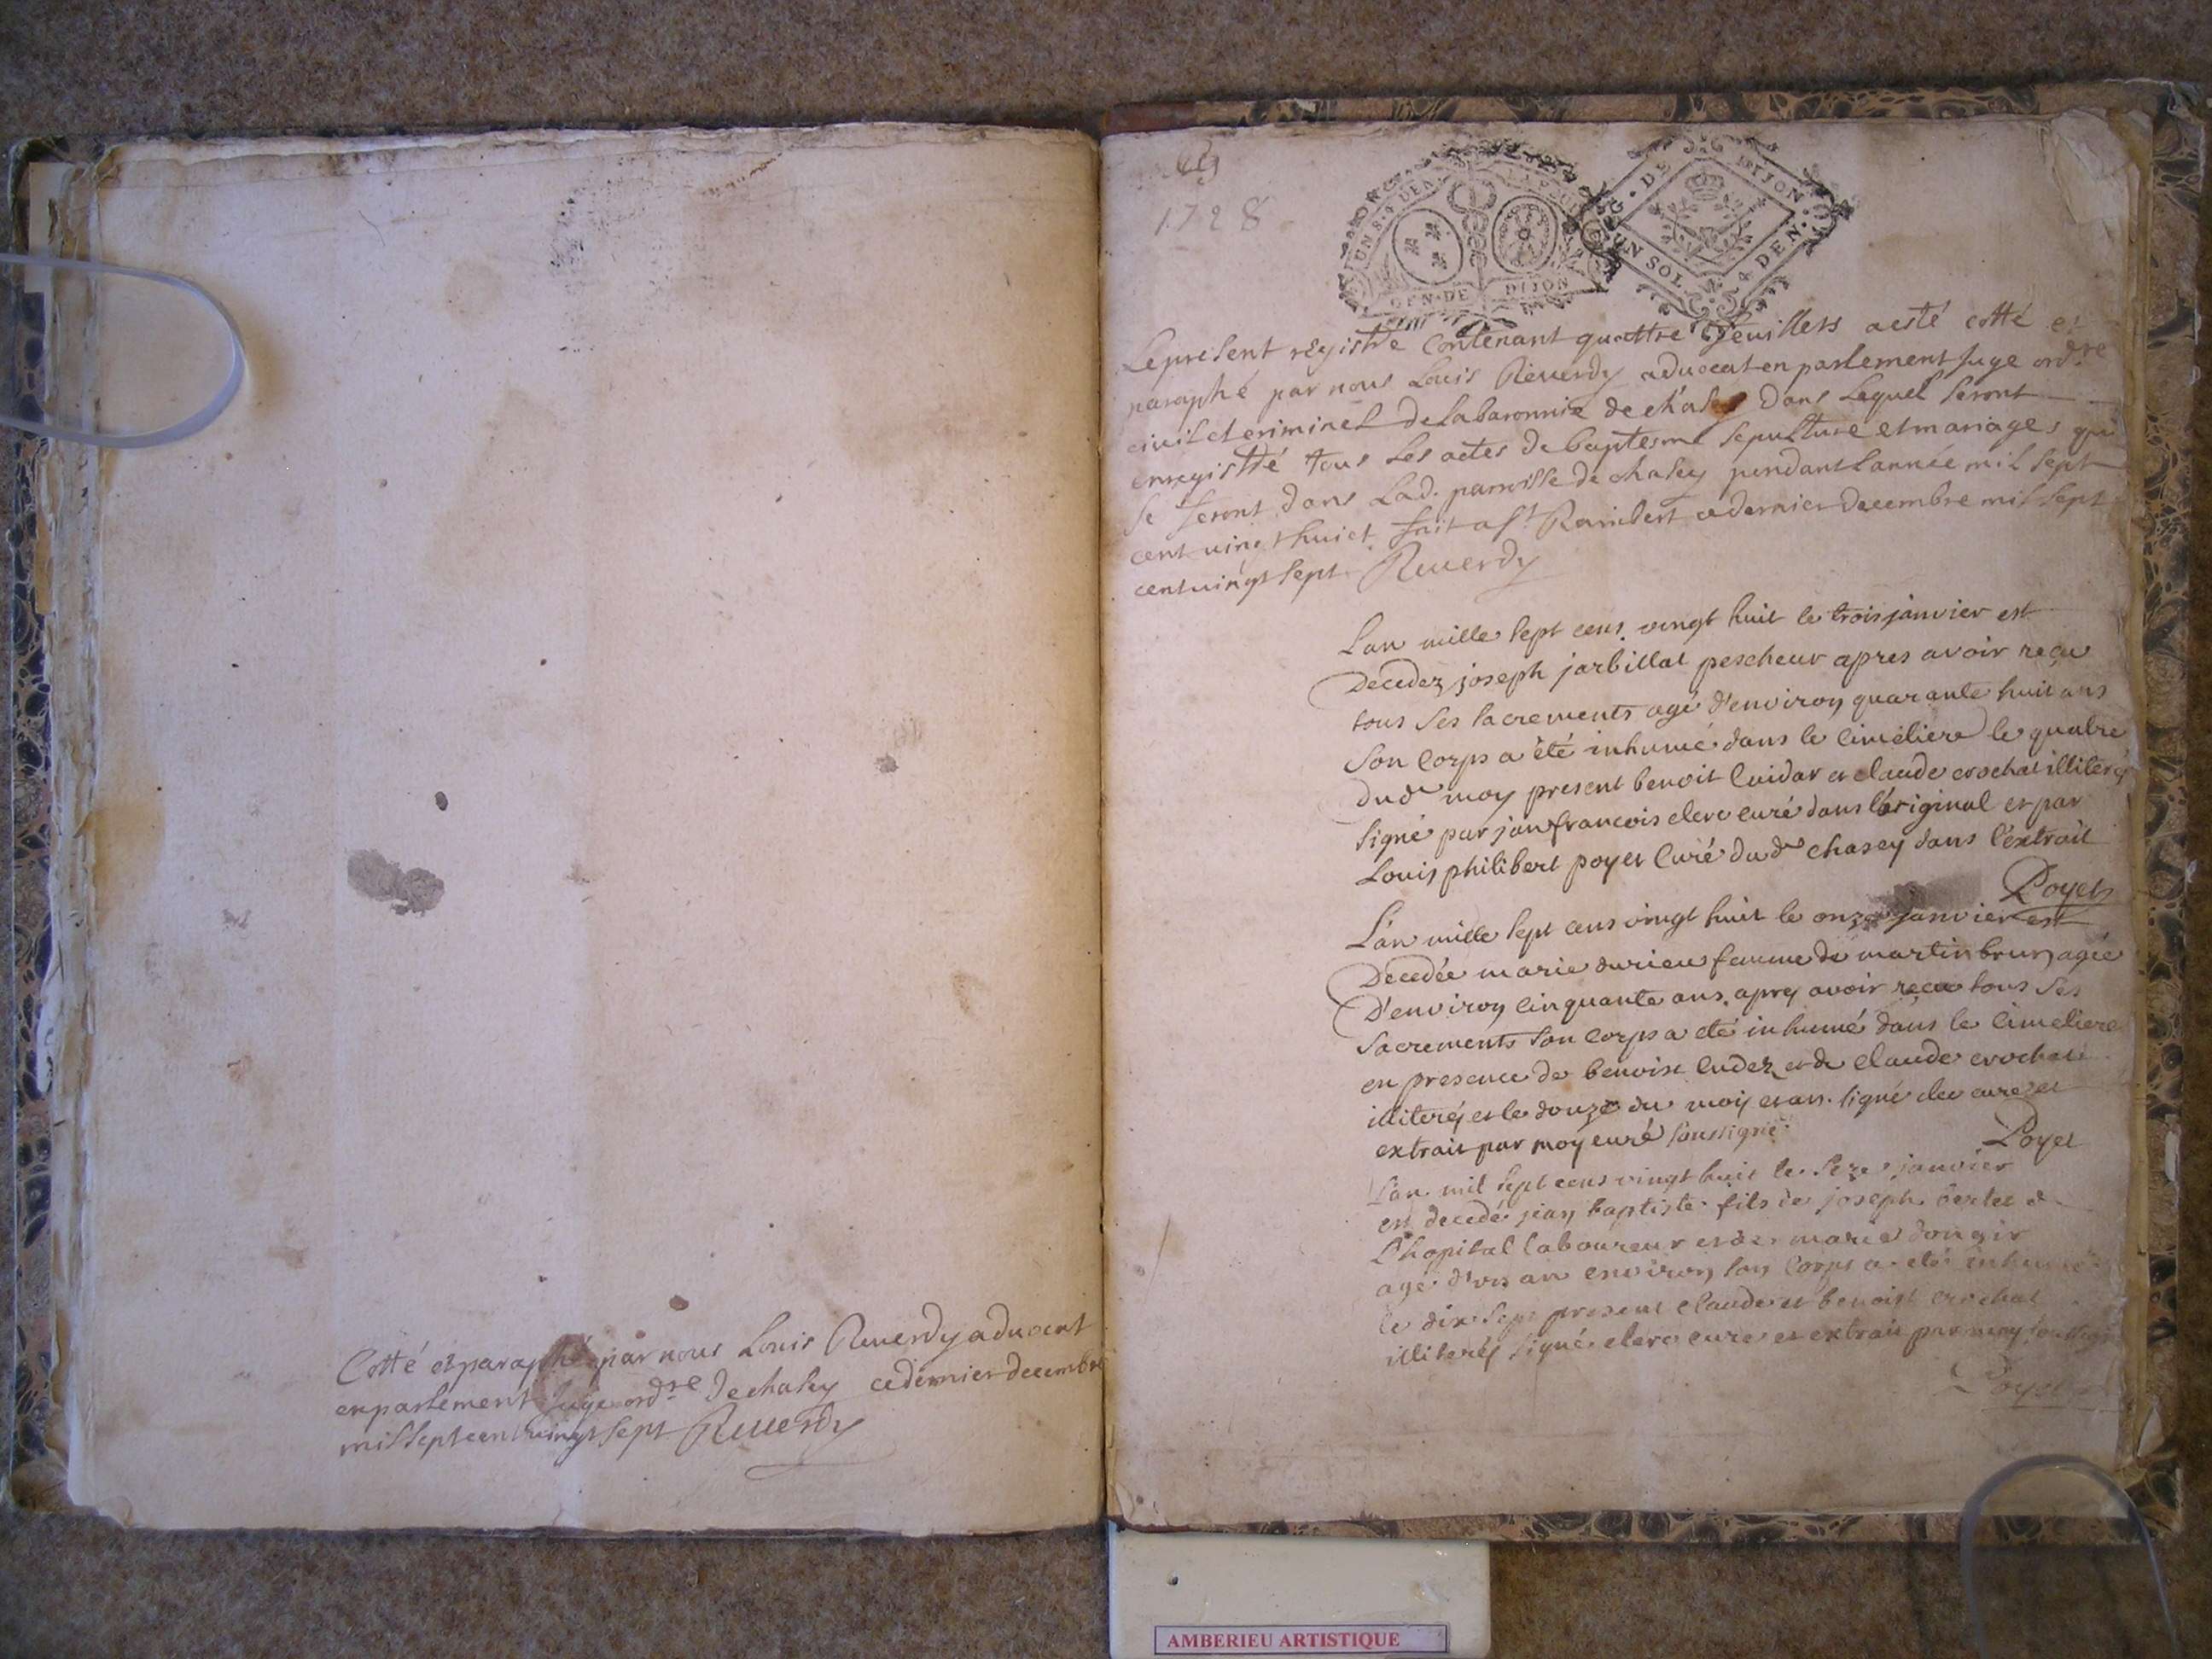 Cotté et paraphé par nous Louis Reuerdy aduocat
en parlement Juge ordre de chasey ce dernier decembre
mil sept cent vingt sept Reuerdy
1728
UN S. 4 DEN
GEN. DE DIJON
G. DE DIJON
UN SOL 4 DEN.
Le present registre Contenant quattre feuillets a esté cotté et
paraphé par nous Louis Reuerdy aduocat en parlement Juge ordre
ciuil et criminel de la baronnie de chasey dans Lequel seront
enregistré tous Les actes de baptesme sepulture et mariages qui
se feront dans Lad. parroisse de chasey pendant Lannée mil sept
cent uingt huict fait a St Rambert ce dernier decembre mil sept
cent uingt sept Reuerdy
L'an mille sept cens vingt huit le trois janvier est
Decedez joseph jarbillat pescheur apres avoir reçu
tous ses sacrements agé d'environ quarante huit ans
son corps a été inhumé dans le cimetiere le quatre
dud moy present benoit Cuidar et claude crochat illiterés
signé par jan francois clerc curé dans l'original et par
Louis philibert poyet Curé dud chasey dans l'extrait
Poyet
L'an mille sept cens vingt huit le onze janvier est
Decedée marie durieu femme de martin brun agée
D'environ cinquante ans apres avoir reçu tous ses
sacrements son corps a eté inhumé dans le cimetiere
en presence de benoist Cudez et de claude crochat
illiterés et le douze du moy et an. signé clerc curé et
extrait par moy curé soussigné
Poyet
L'an mil sept cens vingt huit le seze janvier
est decedé jean baptiste fils de joseph berlet d
L'hopital laboureur et de marie dongir
agé d'un an environ son corps a eté inhumé
le dix sept present claude et benoist crochat
illiterés signé clerc curé et extrait par moy
Poyet
AMBERIEU ARTISTIQUE